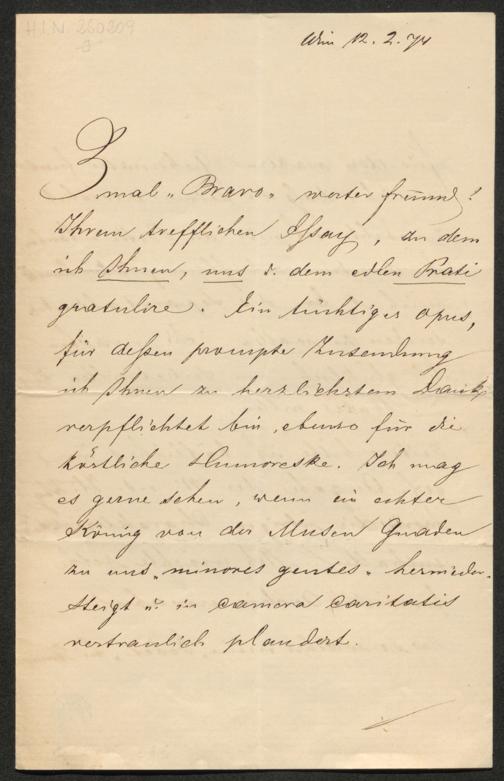 H.I.N. 280209
Wien 12. 2. 74
3 mal „Bravo" werter Freund!
Ihrem trefflichen Essay, zu dem
ich Ihnen, uns u. dem edlen Prati
gratulire. Ein tüchtiges opus,
für deßen prompte Zusendung
ich Ihnen zu herzlichstem Dank
verpflichtet bin, ebenso für die
köstliche Humoreske. Ich mag
es gerne sehen, wenn ein echter
König von der Musen Gnaden
zu uns „minores gentes" hernieder-
steigt u. in camera caritatis
vertraulich plaudert.